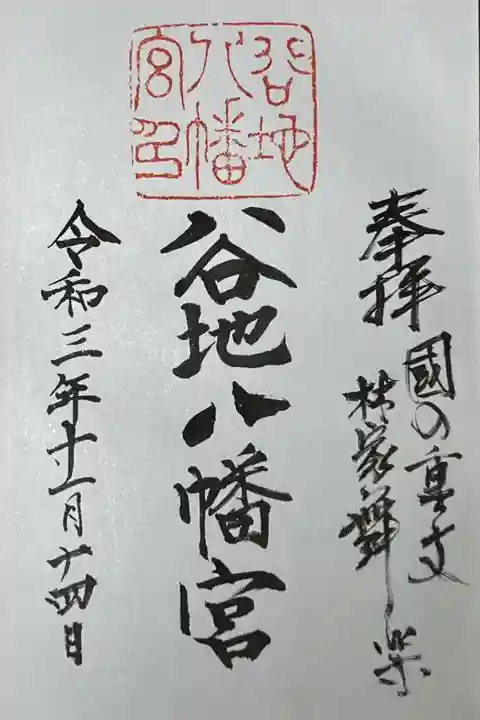 奉拝
國の重文
林家舞楽
谷地八幡宮
谷地
八幡
宮印
令和三年十一月廿四日